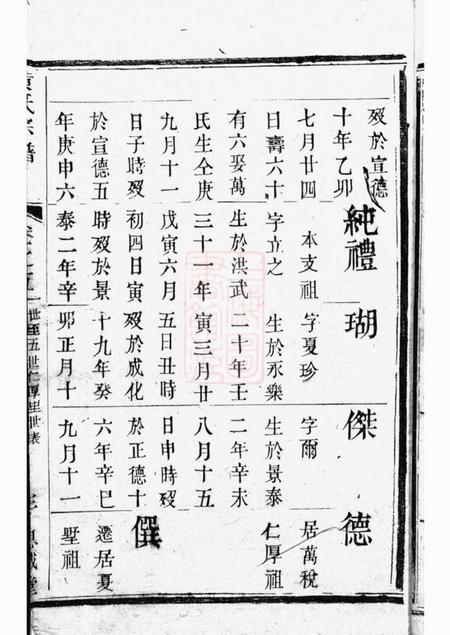 歿於宣德
十年乙卯
七月廿四
日壽六十
有六娶萬
氏生仝庚
九月十一
日子時歿
於宣德五
年庚申六
純禮
本支祖
字立之
生於洪武
三十一年
戊寅六月
初四日寅
時歿於景
泰二年辛
瑚
字夏珍
生於永樂
二十年壬
寅三月廿
五日丑時
歿於成化
十九年癸
卯正月十
傑
字爾
生於景泰
二年辛未
八月十五
日申時歿
於正德十
六年辛巳
九月十一
德
居萬稅
仁厚祖
僎
遷居夏
墅祖
氏宗譜
一世至五世仁厚里世表